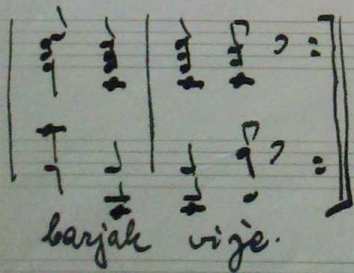 barjak vije.